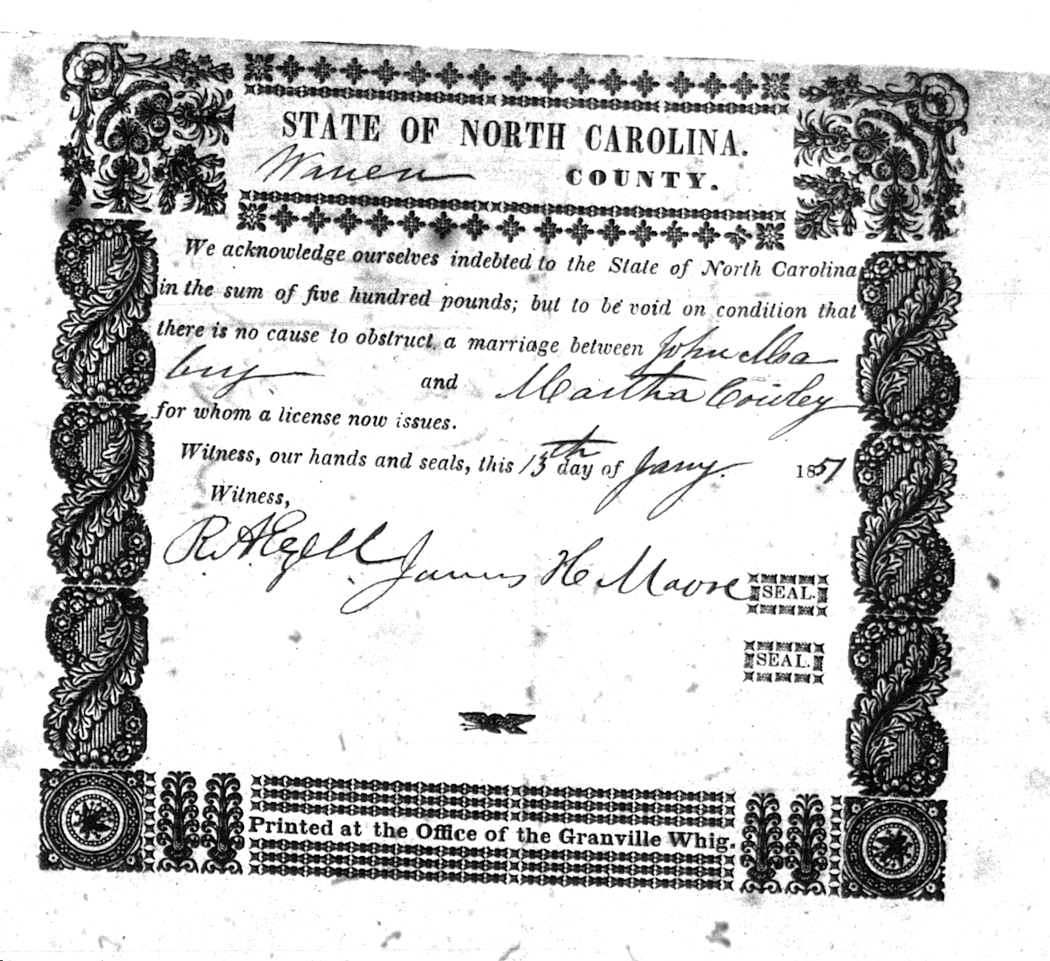 STATE OF NORTH CAROLINA.
Warren COUNTY.
We acknowledge ourselves indebted to the State of North Carolina
in the sum of five hundred pounds; but to be void on condition that
there is no cause to obstruct a marriage between John
and Martha
for whom a license now issues.
Witness, our hands and seals, this 13th day of Jany. 1851
Witness,
R. A. Ezell James H Moore SEAL.
SEAL.
Printed at the Office of the Granville Whig.